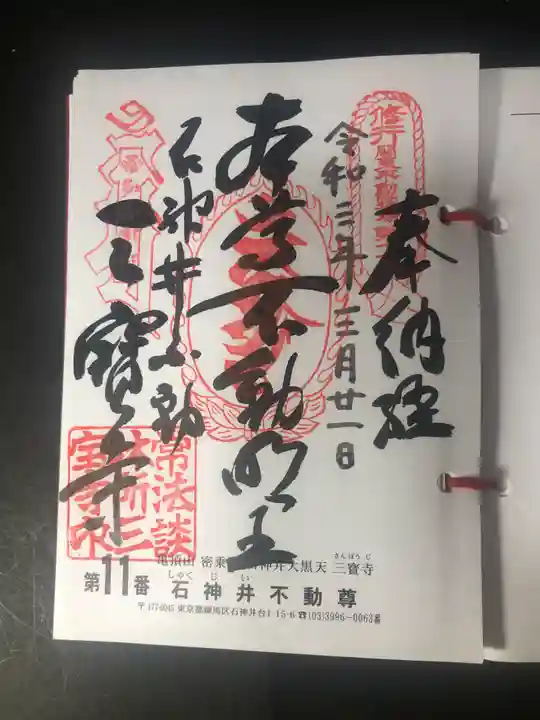 奉納経
令和三年三月廿一日
本尊不動明王
石神井不動
三寳寺
常法談
林所三
宝寺印
亀頂山 密乗 神井大黒天 三寳寺
さんぽうじ
しゃくじい
第11番 石神井不動尊
東京都練馬区石神井台1-15-6 ☎(03)3996-0063番